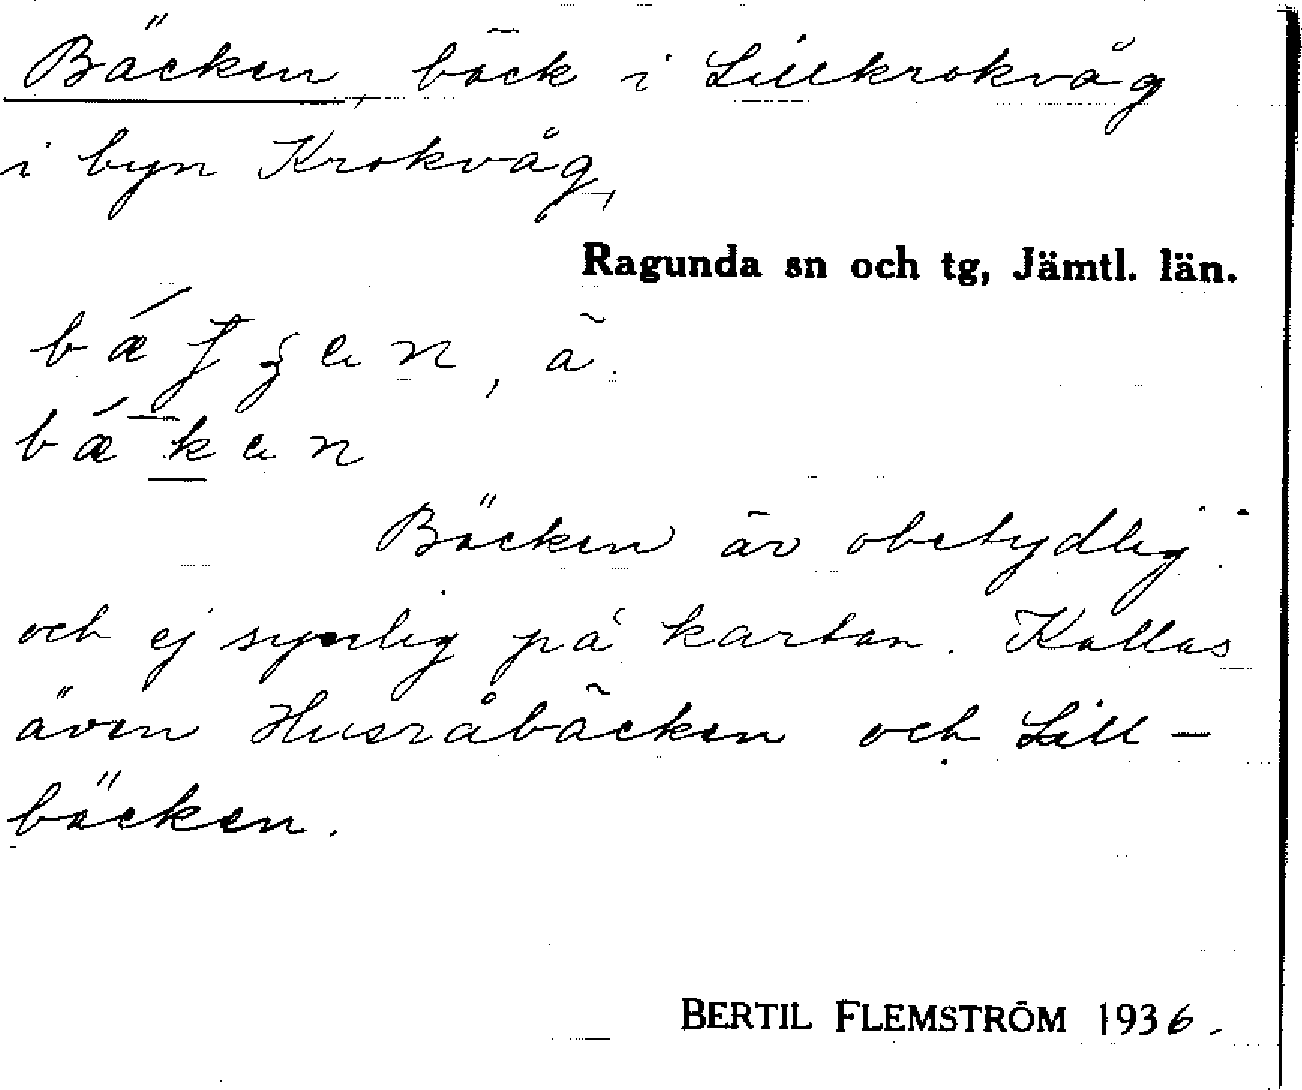 Bäcken, bäck i Lillkrokvåg
i byn Krokvåg,
Ragunda sn och tg, Jämtl. län.
ä.
Bäcken är obetydlig
och ej synlig på kartan. Kallas
även Husråbäcken och Lill-
bäcken.
BERTIL FLEMSTRÖM 1936.